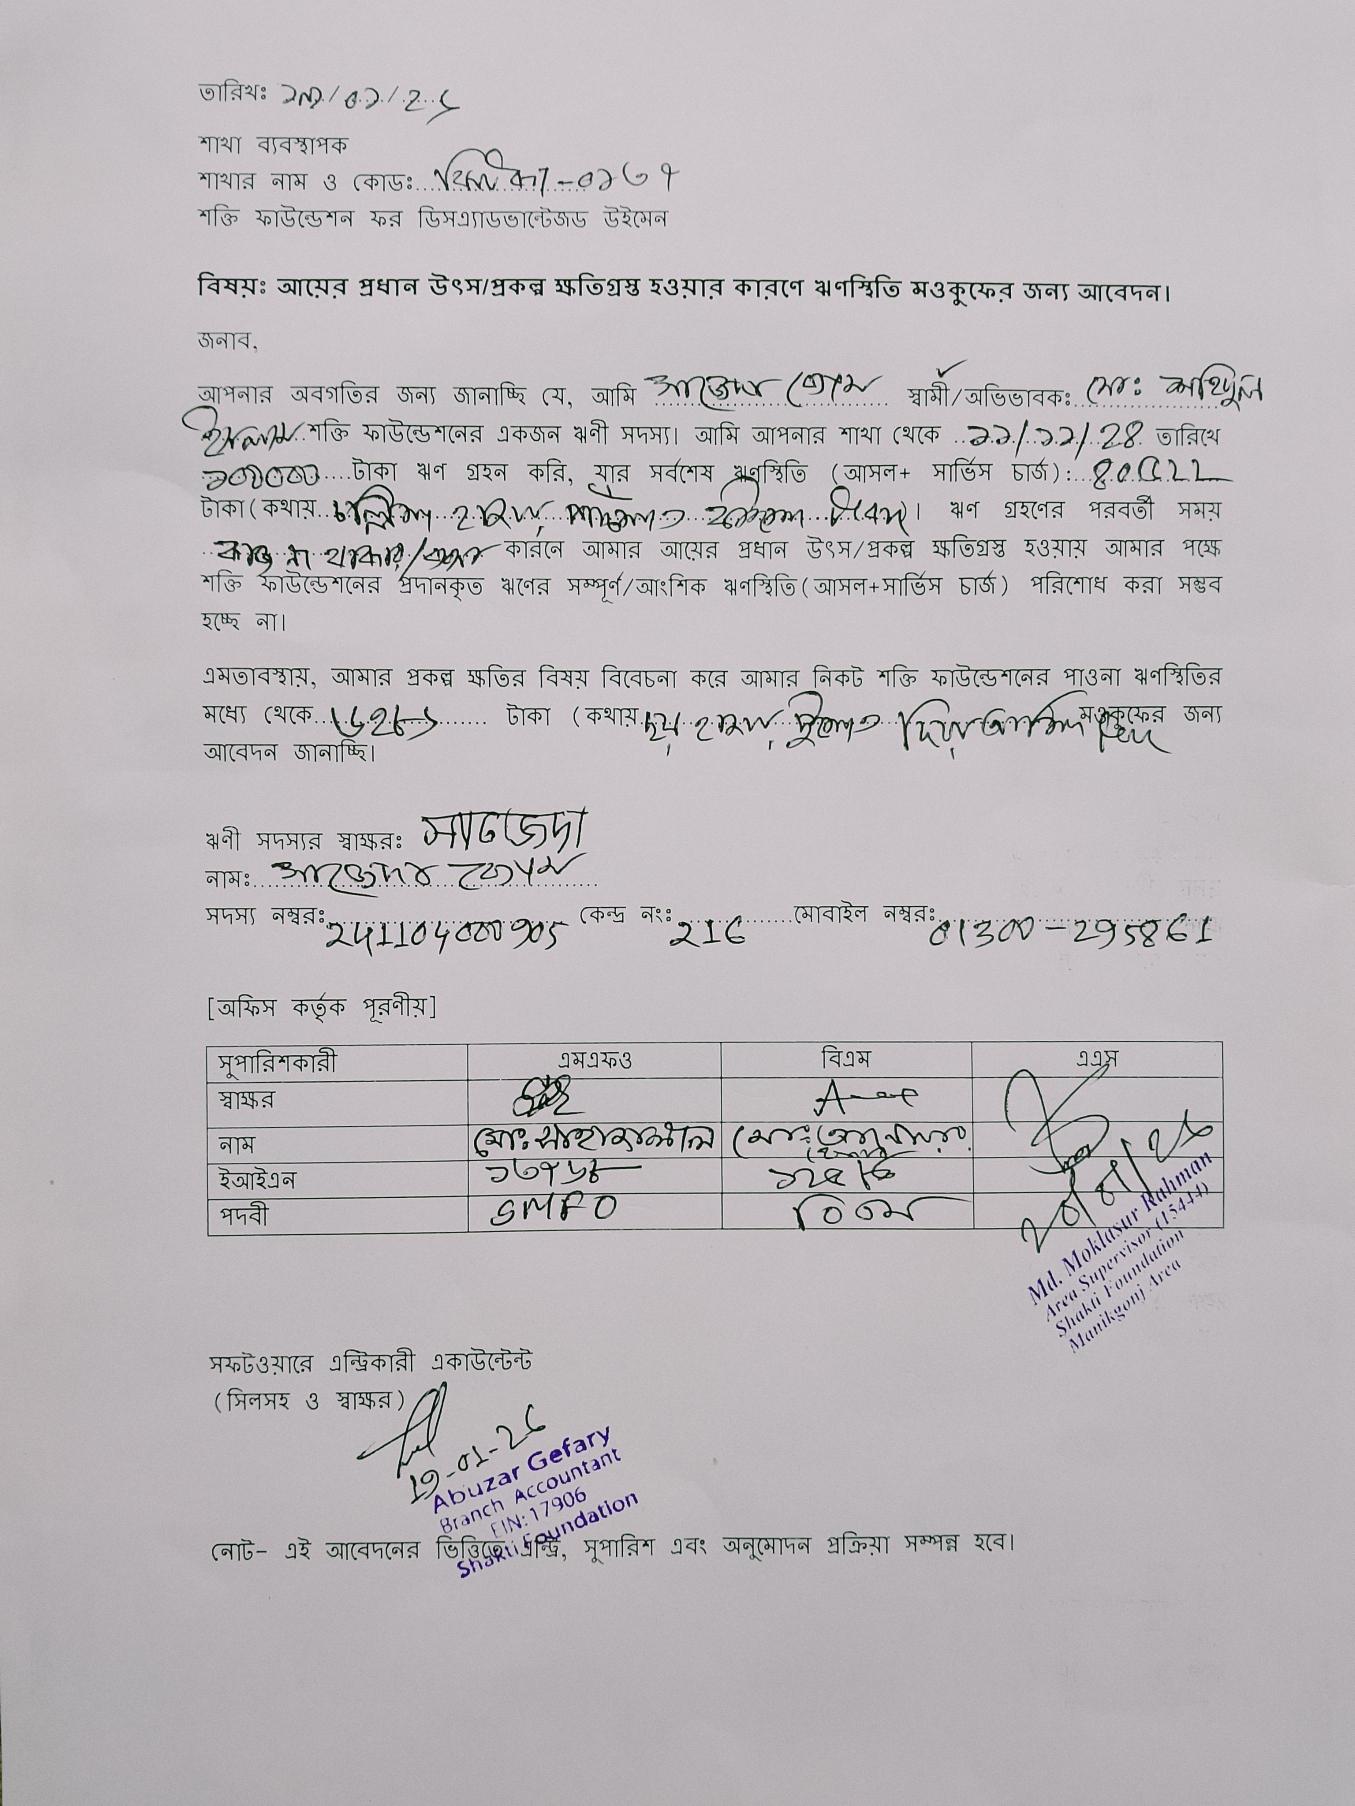 তারিখঃ
শাখা ব্যবস্থাপক
শাখার নাম ও কোডঃ
শক্তি ফাউন্ডেশন ফর ডিসএ্যাডভান্টেজড উইমেন
বিষয়ঃ আয়ের প্রধান উৎস/প্রকল্প ক্ষতিগ্রস্ত হওয়ার কারণে ঋণস্থিতি মওকুফের জন্য আবেদন।
জনাব,
আপনার অবগতির জন্য জানাচ্ছি যে, আমি স্বামী/অভিভাবকঃ মোঃ
ইসলাম শক্তি ফাউন্ডেশনের একজন ঋণী সদস্য। আমি আপনার শাখা থেকে ১১/১১/24 তারিখে
টাকা ঋণ গ্রহন করি, যার সর্বশেষ ঋণস্থিতি (আসল+ সার্ভিস চার্জ):
টাকা(কথায় চল্লিশ হাজার )। ঋণ গ্রহণের পরবর্তী সময়
কাজ না থাকার কারনে আমার আয়ের প্রধান উৎস/প্রকল্প ক্ষতিগ্রস্ত হওয়ায় আমার পক্ষে
শক্তি ফাউন্ডেশনের প্রদানকৃত ঋণের সম্পূর্ণ/আংশিক ঋণস্থিতি(আসল+সার্ভিস চার্জ) পরিশোধ করা সম্ভব
হচ্ছে না।
এমতাবস্থায়, আমার প্রকল্প ক্ষতির বিষয় বিবেচনা করে আমার নিকট শক্তি ফাউন্ডেশনের পাওনা ঋণস্থিতির
মধ্যে থেকে টাকা (কথায় ছয় হাজার দুইশত মওকুফের জন্য
আবেদন জানাচ্ছি।
ঋণী সদস্যর স্বাক্ষরঃ সাজেদা
নামঃ
সদস্য নম্বরঃ 241104000905 কেন্দ্র নংঃ 216 মোবাইল নম্বরঃ 01300-295861
[অফিস কর্তৃক পূরণীয়]
সুপারিশকারী এমএফও বিএম এএস
স্বাক্ষর
নাম মোঃ মোঃ
ইআইএন
পদবী SMFO বিএম
Md. Moklasur Rahman
Area Supervisor (15444)
Shakti Foundation
Manikgonj Area
সফটওয়ারে এন্ট্রিকারী একাউন্টেন্ট
(সিলসহ ও স্বাক্ষর)
19-01-26
Abuzar Gefary
Branch Accountant
EIN:17906
Shakti Foundation
নোট- এই আবেদনের ভিত্তিতে এন্ট্রি, সুপারিশ এবং অনুমোদন প্রক্রিয়া সম্পন্ন হবে।